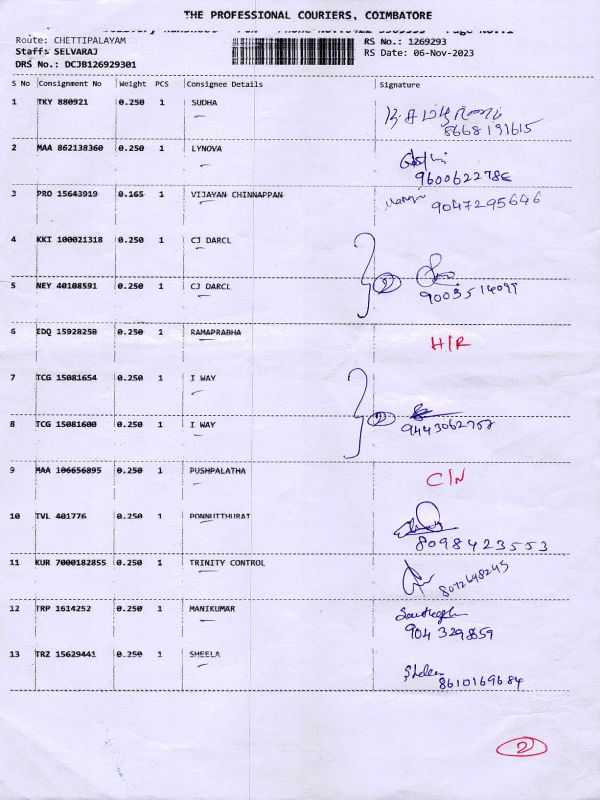 THE PROFESSIONAL COURIERS, COIMBATORE
Route: CHETTIPALAYAM
Staff: SELVARAJ
DRS No.: DCJB126929301
RS No.: 1269293
RS Date: 06-Nov-2023
S No Consignment No Weight PCS Consignee Details Signature
1 TKY 880921 0.250 1 SUDHA
8668191615
2 MAA 862138360 0.250 1 LYNOVA
3 PRO 15643919 0.165 1 VIJAYAN CHINNAPPAN 9047295646
4 KKI 100021318 0.250 1 CJ DARCL
2
5 NEY 40108591 0.250 1 CJ DARCL
6 EDQ 15928258 0.250 1 RAMAPRABHA H/R
7 TCG 15081654 0.250 1 I WAY
2
8 TCG 15081600 0.250 1 I WAY
9443062757
9 MAA 106656895 0.250 1 PUSHPALATHA C/N
10 TVL 401776 0.250 1 PONNUTTHURAT
8098423553
11 KUR 7000182855 0.250 1 TRINITY CONTROL
8072698245
12 TRP 1614252 0.250 1 MANIKUMAR
904329859
13 TRZ 15629441 0.250 1 SHEELA
Sheela
8610169684
2